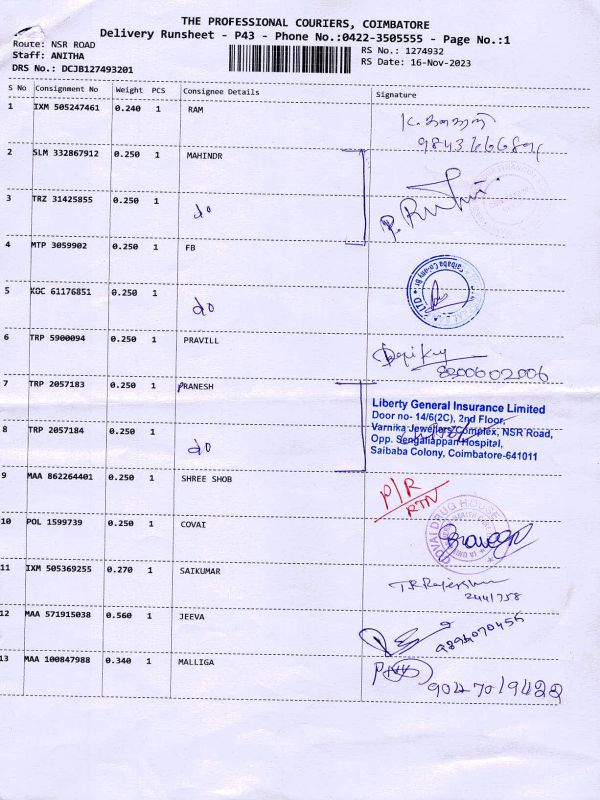 THE PROFESSIONAL COURIERS, COIMBATORE
Delivery Runsheet - P43 - Phone No.:0422-3505555 - Page No.:1
Route: NSR ROAD
RS No.: 1274932
Staff: ANITHA
RS Date: 16-Nov-2023
DRS No.: DCJB127493201
S No Consignment No Weight PCS Consignee Details Signature
1 IXM 505247461 0.240 1 RAM
2 SLM 332867912 0.250 1 MAHINDR
3 TRZ 31425855 0.250 1 do
4 MTP 3059902 0.250 1 FB
5 KGC 61176851 0.250 1 do
6 TRP 5900094 0.250 1 PRAVILL
8200602006
7 TRP 2057183 0.250 1 PRANESH
Liberty General Insurance Limited
Door no- 14/6(2C), 2nd Floor,
Varnika Jewellers Complex, NSR Road,
Opp. Sengaliappan Hospital,
Saibaba Colony, Coimbatore-641011
8 TRP 2057184 0.250 1 do
9 MAA 862264401 0.250 1 SHREE SHOB
P/R
RTN
10 POL 1599739 0.250 1 COVAI
11 IXM 505369255 0.270 1 SAIKUMAR
2441758
12 MAA 571915038 0.560 1 JEEVA
9894070455
13 MAA 100847988 0.340 1 MALLIGA
9047019422